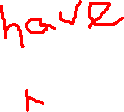 have
r